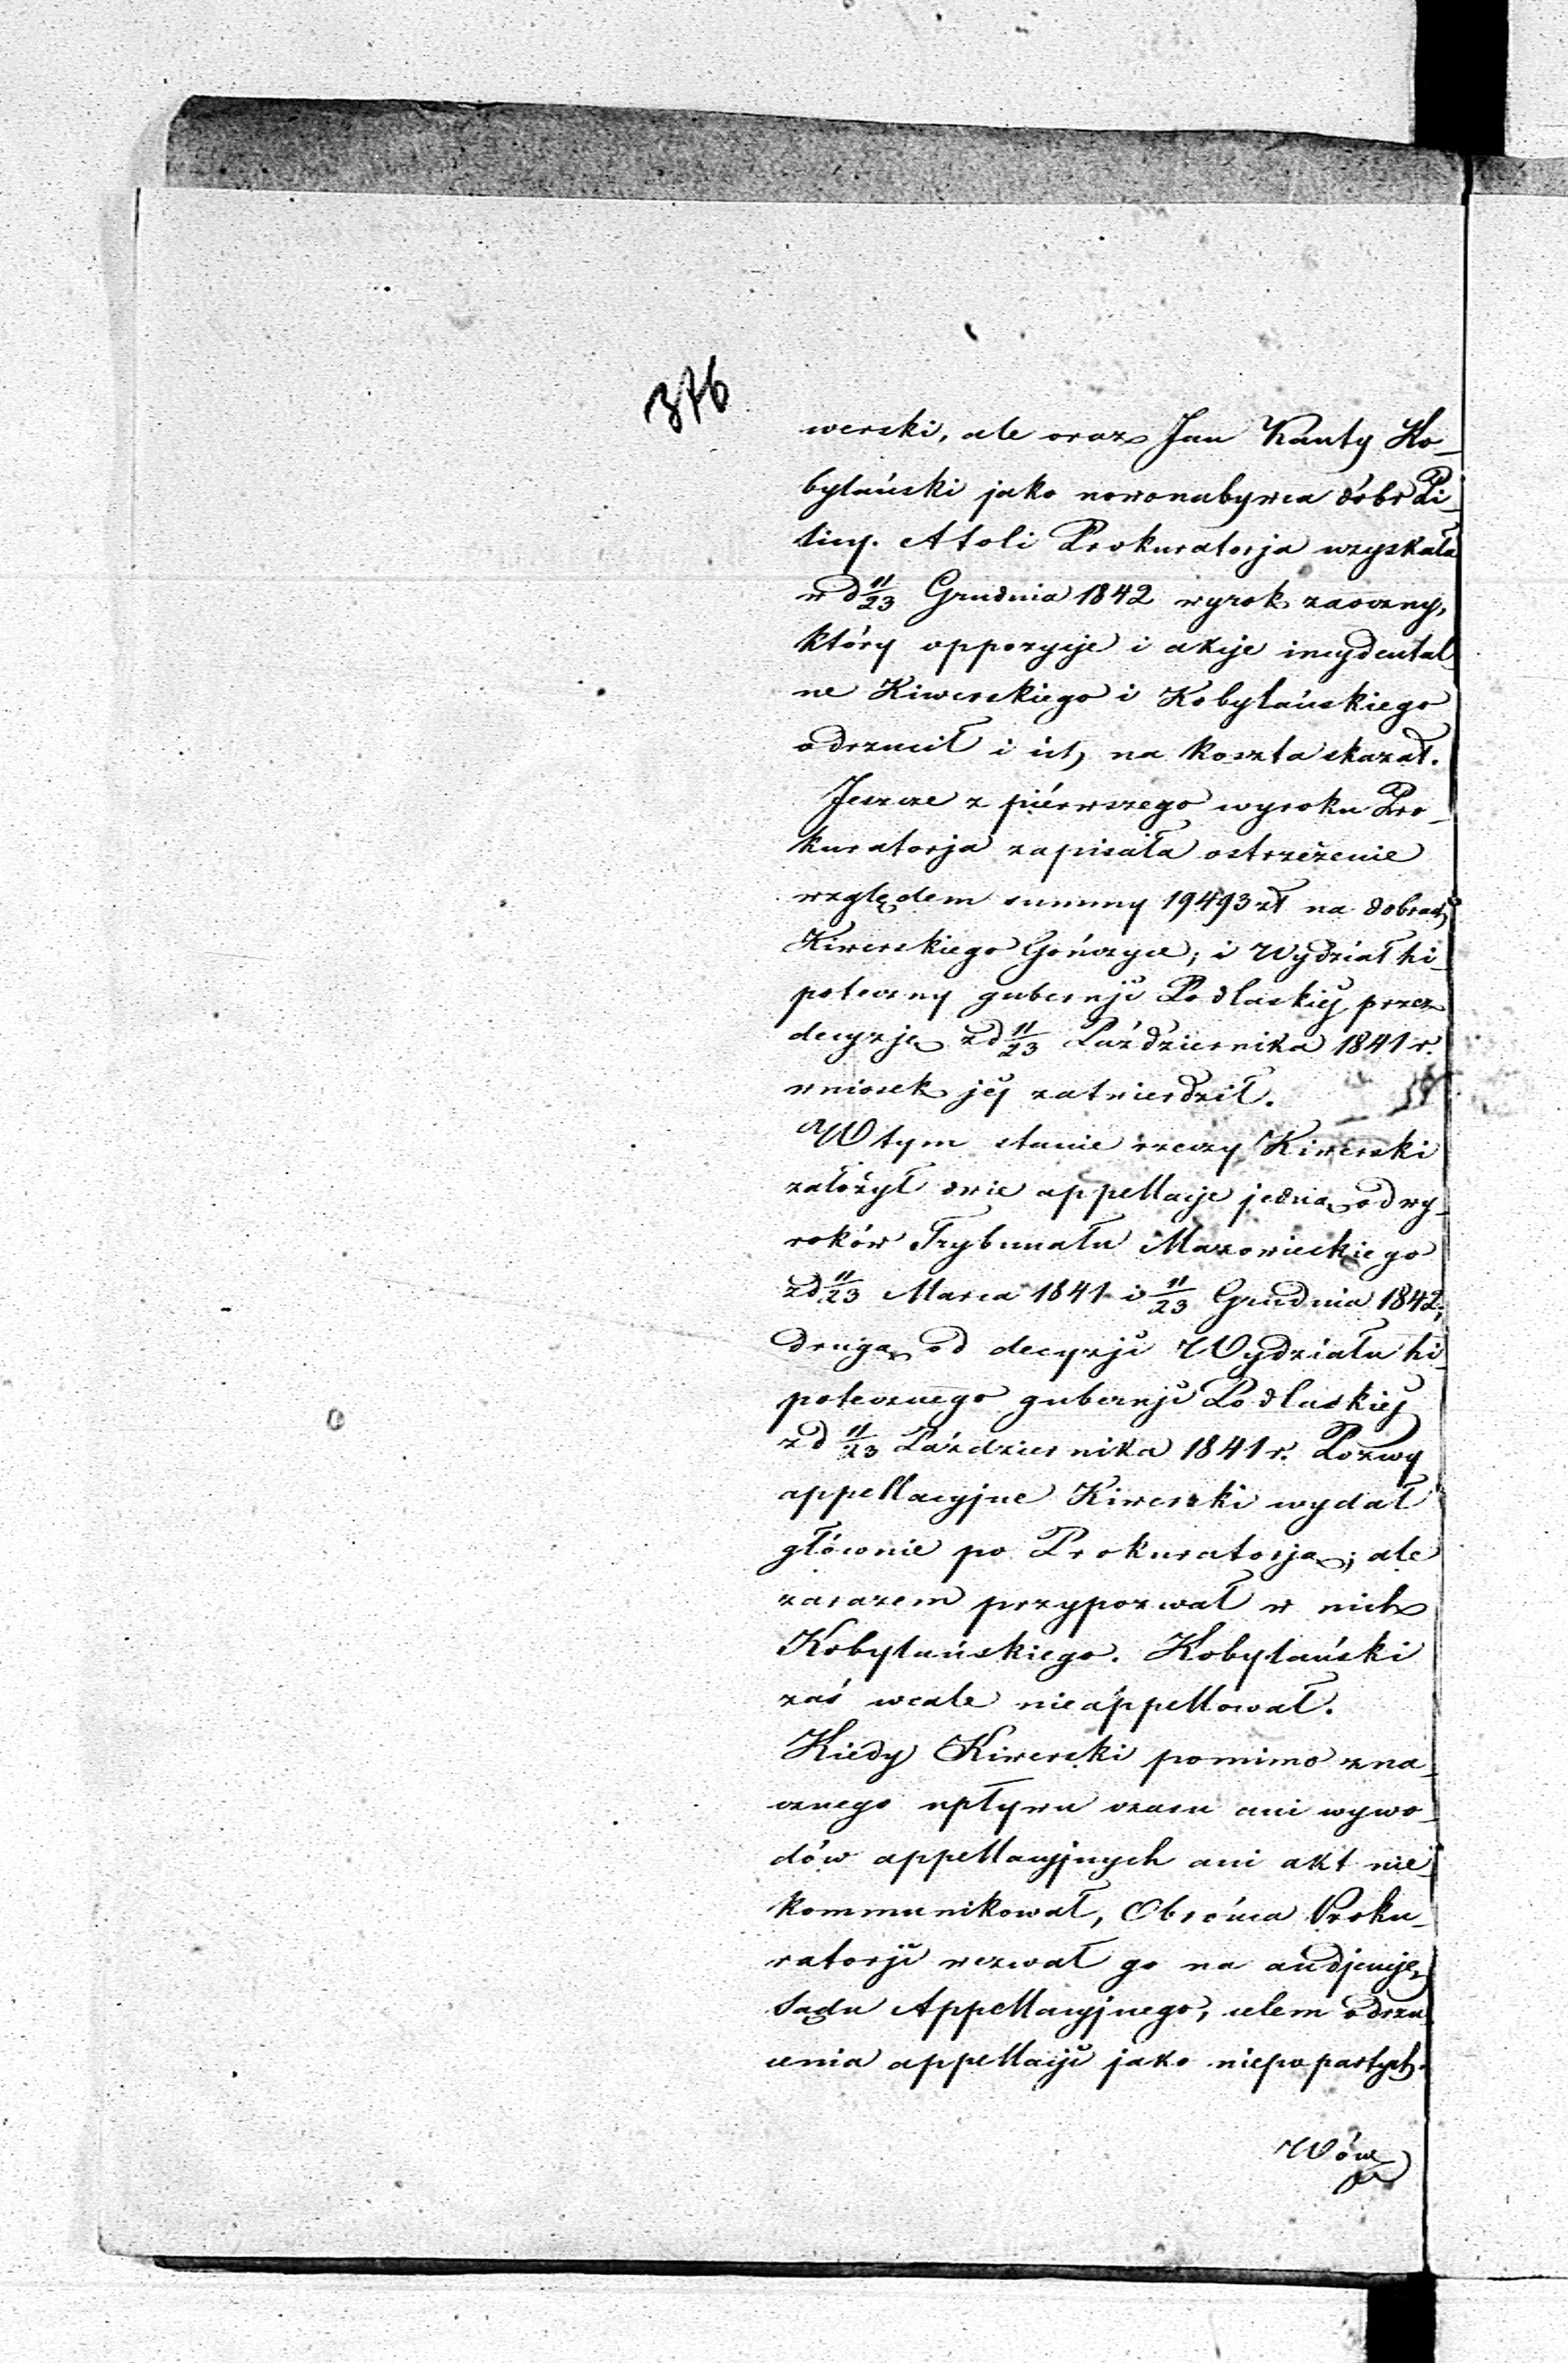 376
werski, ale oraz Jan Kanty Ko_
bylański jako nowonabywca dóbr Pi_
licy. Atoli Prokuratorja wzyskała
w d 11/23 Grudnia 1842 wyrok zaoczny,
który oppozycje i akcje incydental_
ne Kiwerskiego i Kobylańskiego
odrzucił i ich na koszta skazał.
Jeszcze z piérwszego wyroku Pro_
kuratorja zapisała ostrzeżenie
względem summy 19493 zł na dobrach
Kiwerskiego Gończyce; i Wydział hi_
poteczny gubernji Podlaskiéj przez
decyzję z d 11/23 Października 1841 r.
wniosek jéj zatwierdził.
W tym stanie rzeczy Kiwerski
założył dwie appellacje jedną od wy_
roków Trybunału Mazowieckiego
z d 11/23 Marca 1841 i 11/23 Grudnia 1842;
drugą od decyzji Wydziału hi_
potecznego gubernji Podlaskiéj
z d 11/23 Października 1841 r. Pozwy
appellacyjne Kiwerski wydał
głównie po Prokuratorją; ale
zarazem przypozwał w nich
Kobylańskiego. Kobylański
zaś wcale nieappellował.
Kiedy Kiwerski pomimo zna_
cznego upływu czasu ani wywo_
dów appellacyjnych ani akt nie_
kommunikował, Obrońca Proku_
ratorji wezwał go na audjencję
Sądu Appellacyjnego, celem odrzu_
cenia appellacji jako niepopartych.
Wów